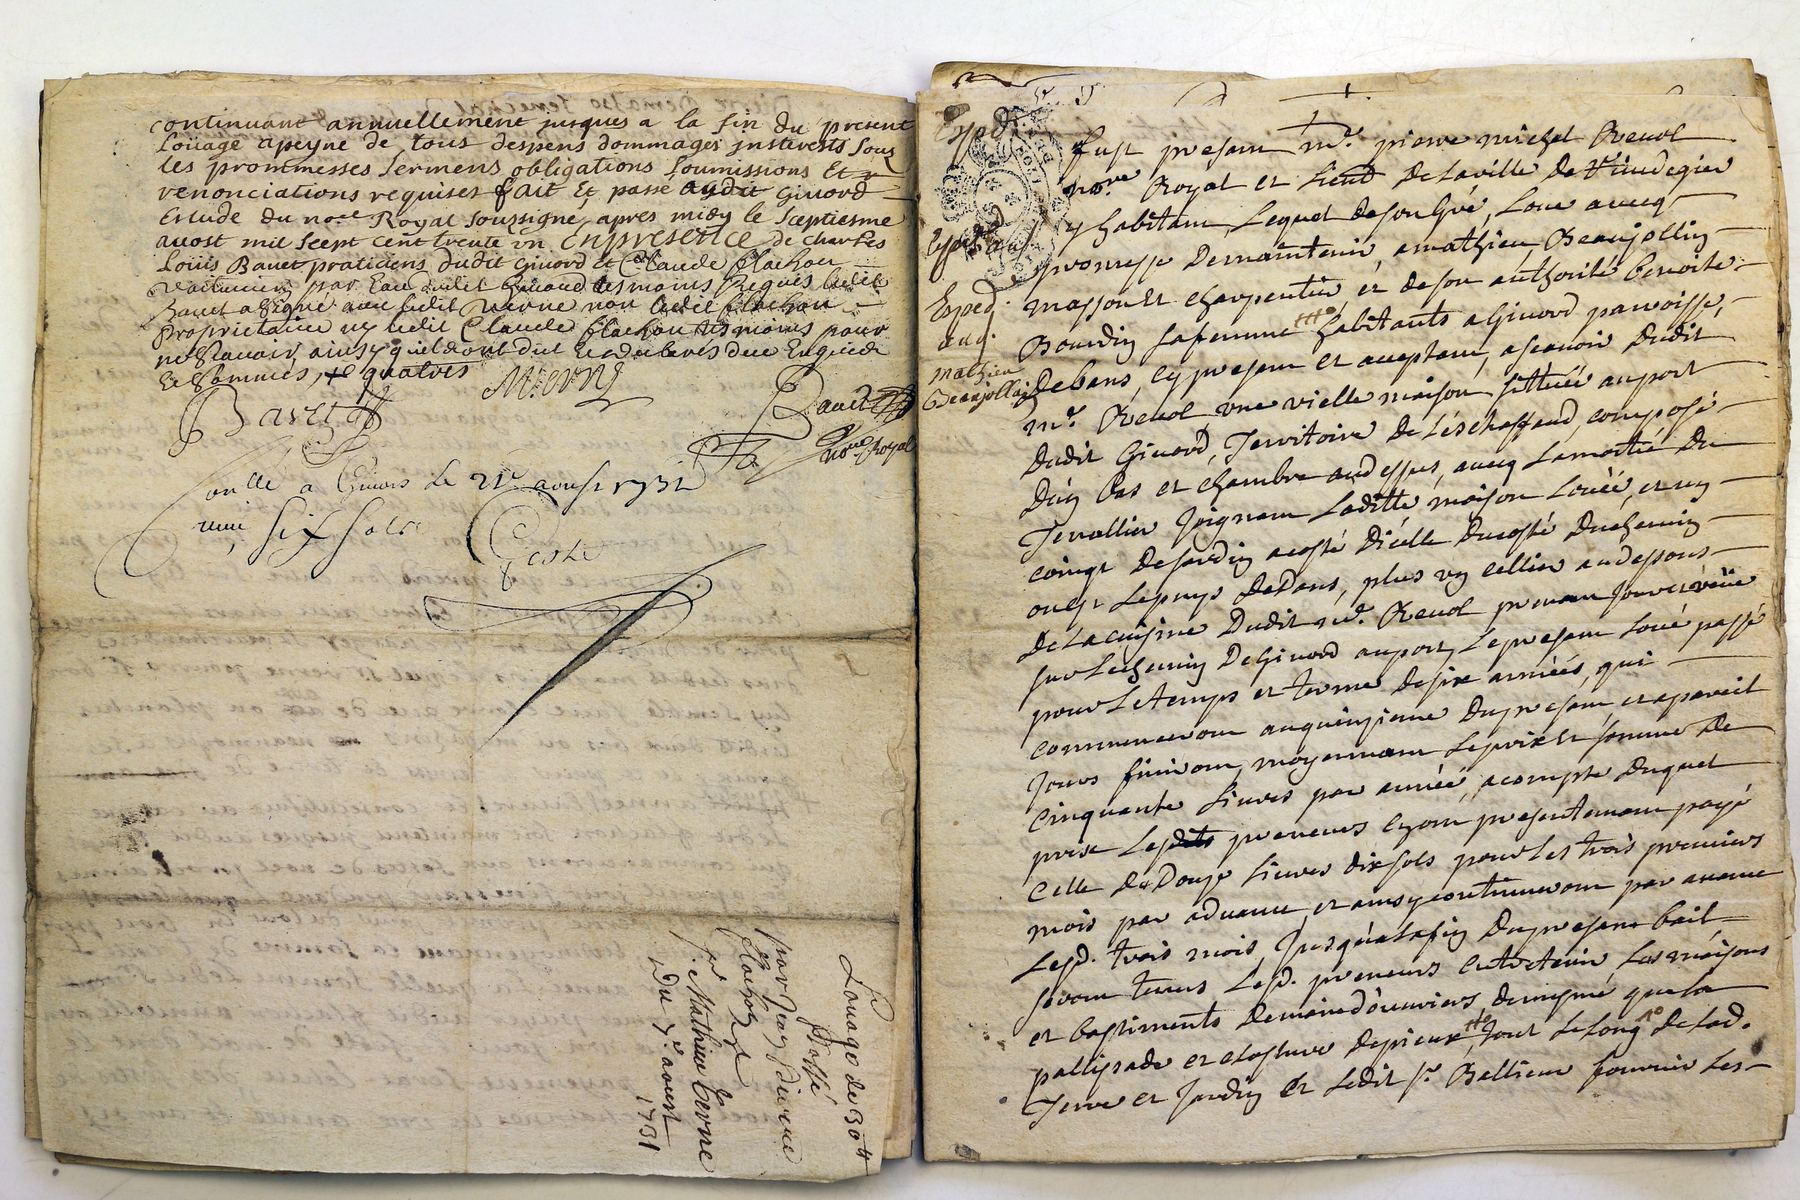 continuant annuellement jusques a la fin du present
Loüage apeyne de tous despens dommages jnsterests sous
les prommesses sermens obligations soumissions Et
renonciations requises fait Et passé audit Givord
Estude du no.re Royal soussigné apres midy le sceptiesme
aoust mil scept cent trente un En presence de charles
Loüis Bauet praticiens dudit givord et Claude flachon
voiturier par Eau dudit Givord tesmoins Requis ledit
Bauet a signé avec ledit verne non ledit flachon
proprietaire ny ledit Claude flachon tesmoins pour
ne sçavoir ainsy quils ont dit
Et sommés, quatres
Bavet
M. verne
Bauet
no.re Royal
Conllé a Givors le 21e aoust 1731
six sols
Louage de 30 ₶
Passé
par Jean pierre
flachon
a s.r Mathieu Verne
Du 7.e aoust
1731
Exped.
Exped.
Exped.
aud.
mathieu
Beaujollin
fust present m.e pierre michel Revol
no.re Royal et Lieut. de la ville de
y habitant, Lequel de son gré, Loue avecq
promesse de maintenir, a mathieu Beaujollin
masson Et charpentier, et de son authorité benoite
Bourdin sa femme habitants a Givord parroisse,
de bans, cy present et acceptant, a sçavoir dudit
m.e Revol, une vielle maison sittuéé au port
dudit Givord, Territoire de Léschaffaud, composé
d'un bas et chambre au dessus, avecq la moitié du
Terrallier joignant Laditte maison Louéé, et un
coingt de jardin a costé d'icélle du costé du chemin
ou Est Le puys dedans, plus un cellier au dessous
de La cuisine dudit m.e Revol prenant
sur Le chemin de Givord au port, Le present Loué passé
pour Le temps et terme de six annéés, qui
commenceront au quinzieme du present, et a pareil
jours finiront, moyennant Le prix Et somme de
Cinquante Livres par annéé, a compte duquel
prix Lesdits preneurs ont presentement payé
Celle de Douze Livres dix sols pour Les trois premiers
mois par advance, et ainsy continueront par avance
Lesd. trois mois, jusqu'a la fin du present bail
seront tenus Lesd. preneurs entretenir Les maisons
et bastiments de main d'ouvriers de mesme que la
pallissade et closture de pieux tout Le Long de Lad.
Terre et jardin Et Ledit s.r Bailleur fournir Les